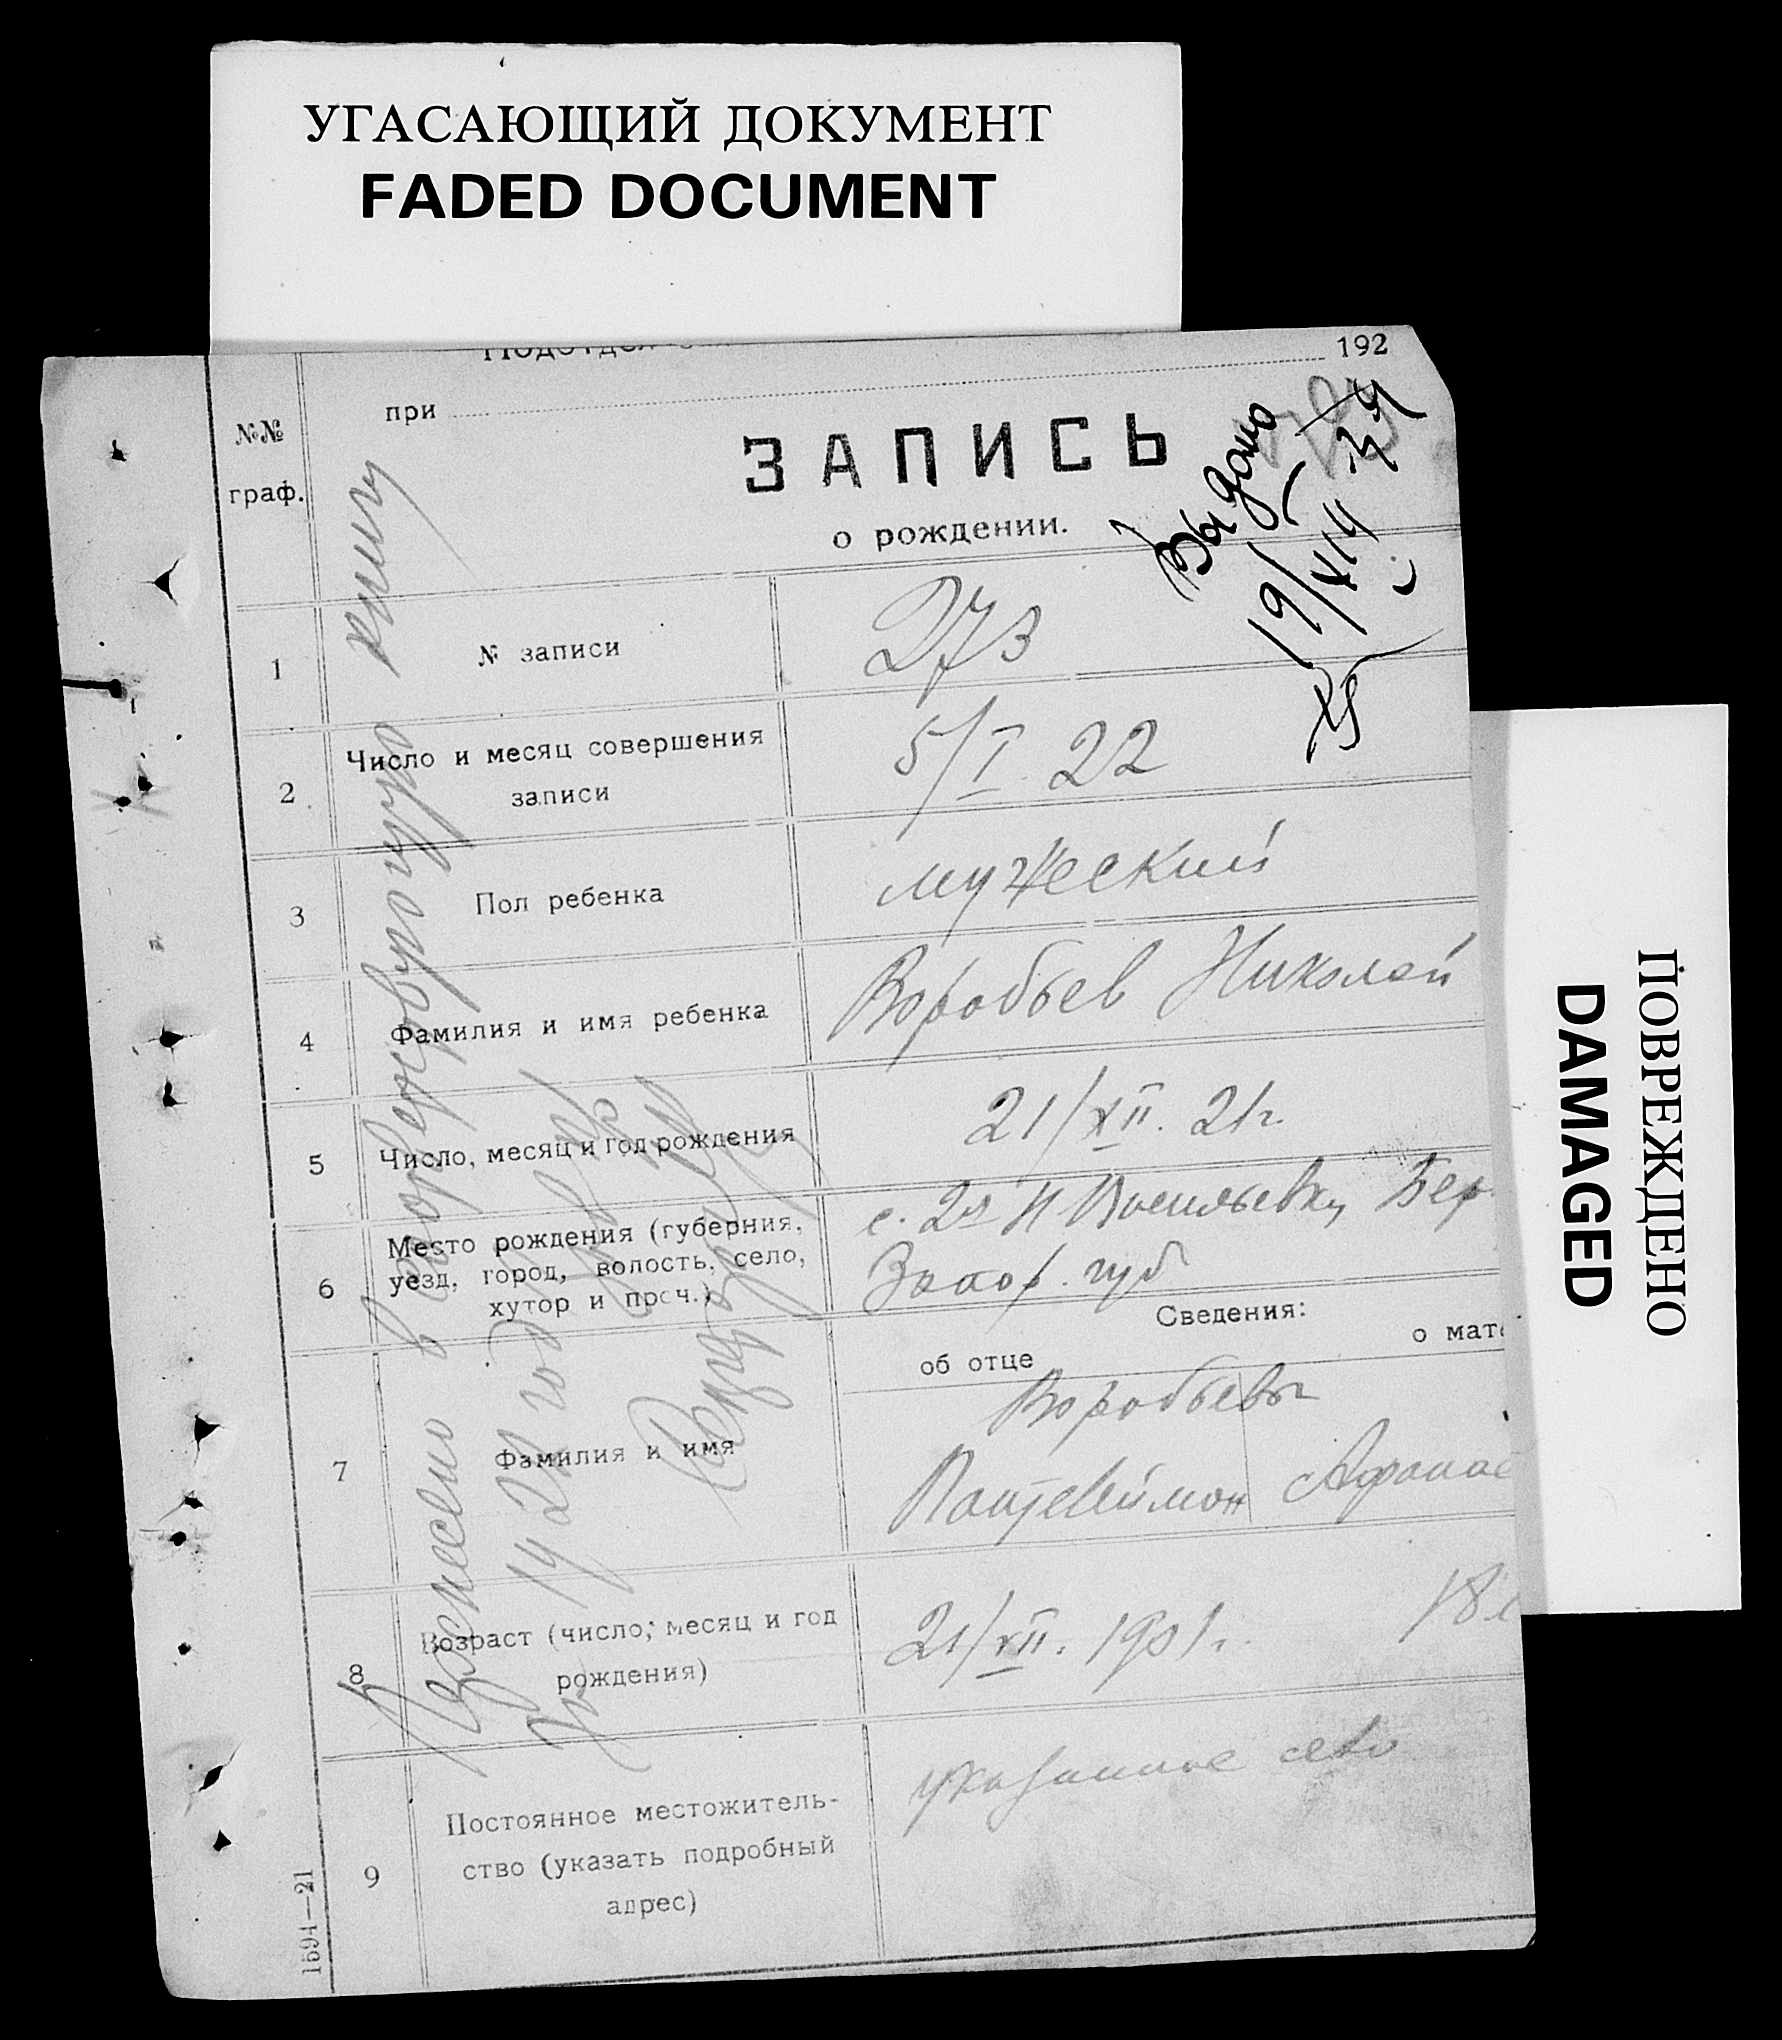 УГАСАЮЩИЙ ДОКУМЕНТ
FADED DOCUMENT
192
при
№№
граф.
ЗАПИСЬ
о рождении.
Выдано
19/XII 34
1
№ записи
273
2
Число и месяц совершения
записи
5/I. 22
3
Пол ребенка
мужеский
4
Фамилия и имя ребенка
Воробьев Николай
5
Число, месяц и год рождения
21/XII. 21г.
6
Место рождения (губерния,
уезд, город, волость, село,
хутор и проч.)
с. 2я Н Васильевка, Бер.
Запор. губ
Сведения:
об отце
о мате
7
Фамилия и имя
Воробьевы
Пантелеймон
Афанас
8
Возраст (число, месяц и год
рождения)
21/XII. 1901г.
18 л
9
Постоянное местожитель-
ство (указать подробный
адрес)
указанное село
1594—21
Внесено в
книгу
за 1921 год
ПОВРЕЖДЕНО
DAMAGED